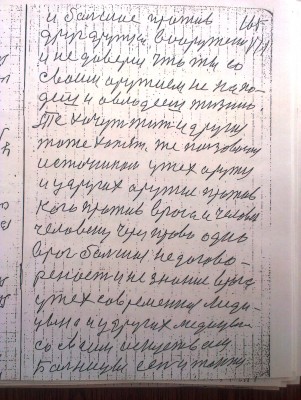 и большие против
друг друга вооружен
и не доверия что ты со
своим оружием не нахо-
деш и овладеем жизнь
Те хочут жить и другия
тоже хотят. Те
источником у тех оружи
и у других оружие против
кого против врога и человек
человеку через право одно
врог большия недогово-
реност и не знание врага
у тех современая меди-
цына и у других медицына
со своим искуством
Больницы есть и